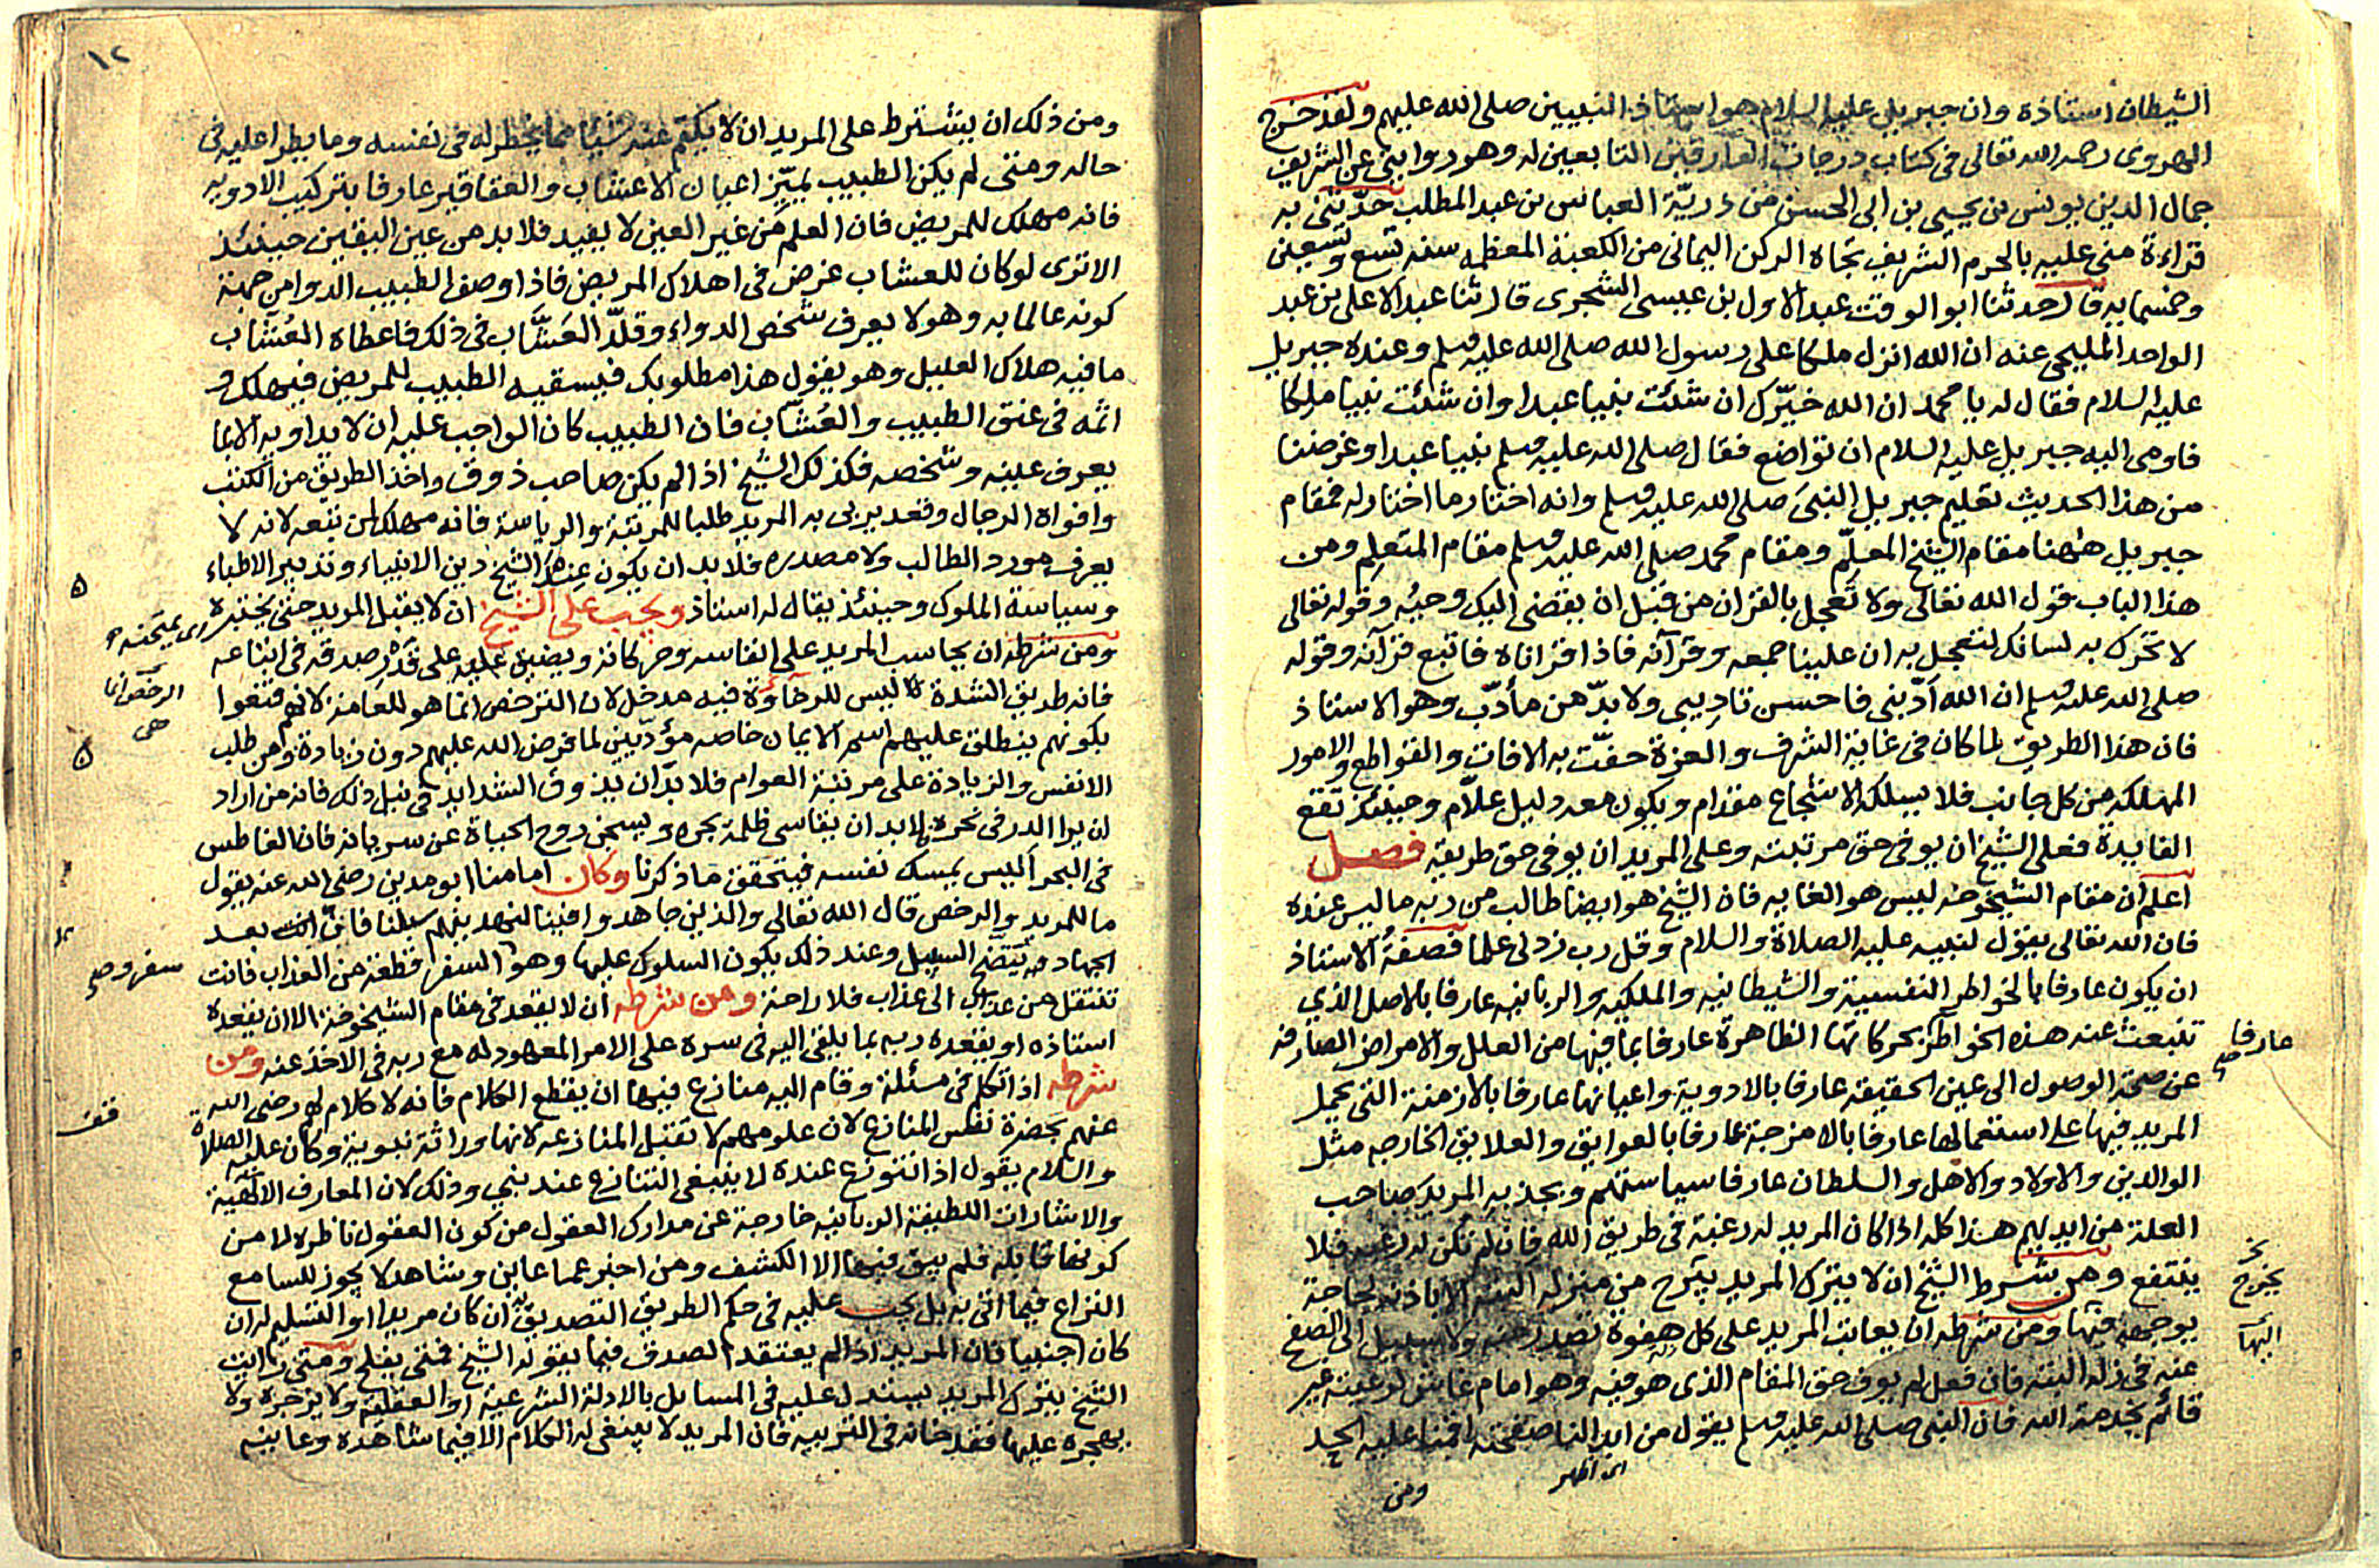 الشيطان أستاذه وان جبريل عليه السلام هو استاذ النبيين صلى الله عليهم ولقد خرج
الهروى رحمه الله تعالى فى كتاب درجات العارفين التابعين له وهو روايتى عن الشريف
جمال الدين يونس بن يحيى بن ابى الحسن من ذريّة العباس بن عبد المطلب حدّثنى به
قراءة منى عليه بالحرم الشريف تجاه الركن اليمانى من الكعبة المعظمه سنه تسع وتسعين
وخمسمايه قال حدثنا ابو الوقت عبد الاول بن عيسى الشجرى قال ثنا عبد الاعلى بن عبد
الواحد المليحى عنه ان الله انزل ملكا على رسول الله صلى الله عليه وسلم وعنده جبريل
عليه السلام فقال له يا محمد ان الله خيّرك ان شئت نبيا عبدا وان شئت نبيا ملكا
فاومى اليه جبريل عليه السلام ان تواضع فقال صلى الله عليه وسلم نبيا عبدا وغرضنا
من هذا الحديث تعليم جبريل النبى صلى الله عليه وسلم وانه اختار ما اختار له فمقام
جبريل ههنا مقام الشيخ المعلِّم ومقام محمد صلى الله عليه وسلم مقام المتعلم ومن
هذا الباب قول الله تعالى ولا تعجل بالقران من قبل ان يقضى اليك وحيُه وقوله تعالى
لا تحرك به لسانك لتعجل به ان علينا جمعه وقرآنه فاذا قراناه فاتبع قرآنه وقوله
صلى الله عليه وسلم ان الله أدّبنى فاحسن تاديبى ولا بدّ من مأدّب وهو الاستاذ
فان هذا الطريق لما كان فى غاية الشرف والعزة حفّت به الافات والقواطع والامور
المهلكه من كل جانب فلا يسلكه الا شجاع مقدام ويكون معه دليل علّام وحينئذ تقع
الفايدة فعلى الشيخ ان يوفى حق مرتبته وعلى المريد ان يوفى حق طريقه فصل
اعلم ان مقام الشيخوخه ليس هو الغايه فان الشيخ هو ايضا طالب من ربه ما ليس عنده
فان الله تعالى يقول لنبيه عليه الصلاة والسلام وقل رب زدنى علما فصفةُ الاستاذ
ان يكون عارفا بالخواطر النفسية والشيطانيه والملكيه والربانيه عارفا بالاصل الذي
تنبعث عنه هذه الخواطر بحركاتها الظاهرة عارفا بما فيها من العلل والامراض الصارفه
عارفا صح
عن صحة الوصول الى عين الحقيقه عارفا بالادوية واعيانها عارفا بالازمنة التى يحمل
المريد فيها على استعمالها عارفا بالامزجة عارفا بالعوايق والعلايق الخارجه مثل
الوالدين والاولاد والاهل والسلطان عارفا سياستهم ويجذبه المريد صاحب
العلة من ايديهم هذا كله اذا كان المريد له رغبة فى طريق الله فان لم تكن له رغبه فلا
ينتفع ومن شرط الشيخ ان لا يترك المريد يبرح من منزله البته الا باذنه لحاجة
يخرج
يوجهه فيها ومن شرطه ان يعاتب المريد على كل هفوة تصدر منه ولا سبيل الى الصفح
اليها
عنه فى زله البته فان فعل لم يوف حق المقام الذى هو فيه وهو امام غاش لرعيته غير
قائم بخدمة الله فان النبى صلى الله عليه وسلم يقول من ابد لنا صفحته اقمنا عليه الحد
اى اظهر
ومن
١٢
ومن ذلك ان يشترط على المريد ان لا يكتم عنه شيئا مما يخطر له فى نفسه وما يطرا عليه فى
حاله ومتى لم يكن الطبيب يميّز اعيان الاعشاب والعقاقير عارفا بتركيب الادويه
فانه مهلك للمريض فان العلم من غير العين لا يفيد فلا بد من عين اليقين حينئذ
الا ترى لو كان للعشاب غرض فى اهلاك المريض فاذا وصف الطبيب الدوا من جهة
كونه عالما به وهو لا يعرف شخص الدواء وقلّد العَشَّاب فى ذلك فاعطاه العُشّاب
ما فيه هلاك العليل وهو يقول هذا مطلوبك فيسقيه الطبيب للمريض فيهلك و
اثمه فى عنق الطبيب والعَشّاب فان الطبيب كان الواجب عليه ان لا يداويه الا بما
يعرف عينه وشخصه فكذلك الشيخ اذا لم يكن صاحب ذوق واخذ الطريق من الكتب
وافواه الرجال وقعد يربى به المريد طلبا للمرتبة والرياسة فانه مهلك لمن تبعه لانه لا
يعرف مورد الطالب ولا مصدره فلا بد ان يكون عند الشيخ دين الانبياء وتدبير الاطباء
وسياسة الملوك وحينئذ يقال له استاذ ويجب على الشيخ ان لا يقبل المريد حتى يختبره
اى يمتحنه
ومن شرطه ان يحاسب المريد على انفاسه وحركاته ويضيق عليه على قدر صدقه فى اتباعه
فانه طريق الشدة ليس للرخاوة فيه مدخل لان الترخص انما هو للعامة لانهم قنعوا
الرخص انما
هى
بكونهم ينطلق عليهم اسم الايمان خاصه مؤدّيين لما فرض الله عليهم دون زيادة ومن طلب
الانفس والزيادة على مرتبة العوام فلا بد ان يذوق الشدايد فى نيل ذلك فانه من اراد
ان يرا الدر فى نحره فلا بد ان يقاسى ظلمة بحره ويسجن روح الحياة عن سريانه فان الغاطس
فى البحر أليس يمسك نفسه فيتحقق ما ذكرنا وكان امامنا ابو مدين رضى الله عنه يقول
ما للمريد والرخص قال الله تعالى والذين جاهدوا فينا لنهدينهم سبلنا فاين انت بعد
الجهاد فيه يتّضح السبيل وعند ذلك يكون السلوك عليها وهو السفر قطعة من العذاب فانت
سفر وصح
تنتقل من عذاب الى عذاب فلا راحة ومن شرطه ان لا يقعد فى مقام الشيخوخة الا ان يقعده
استاذه او يقعده ربه بما يلقى اليه فى سره على الامر المعهود له مع ربه فى الاخذ عنه ومن
شرطه اذا تكلم فى مسئلة وقام اليه منازع فيها ان يقطع الكلام فانه لا كلام له رضى الله
قف
عنهم بحضرة نفس المنازع لان علومهم لا تقبل المنازعه لانها وراثة نبوية وكان عليه الصلاة
والسلام يقول اذا تنوزع عنده لا ينبغى التنازع عند نبي وذلك لان المعارف الالهية
والاشارات اللطيفة الربانيه خارجة عن مدارك العقول من كون العقول ناظره لا من
كونها قابله فلم يبق فيها الا الكشف ومن اخبر عما عاين وشاهد لا يجوز للسامع
النزاع فيما اتى به بل يجب عليه فى حكم الطريق التصديق به ان كان مريدا او التسليم له ان
كان اجنبيا فان المريد اذا لم يعتقد الصدق فيما يقوله الشيخ فمتى يفلح ومتى رايت
الشيخ يترك المريد يستدل عليه فى المسايل بالادلة الشرعية او العقليه ولا يزجره ولا
يهجره عليها فقد خانه فى التربيه فان المريد لا ينبغى له الكلام الا فيما شاهده وعاينه